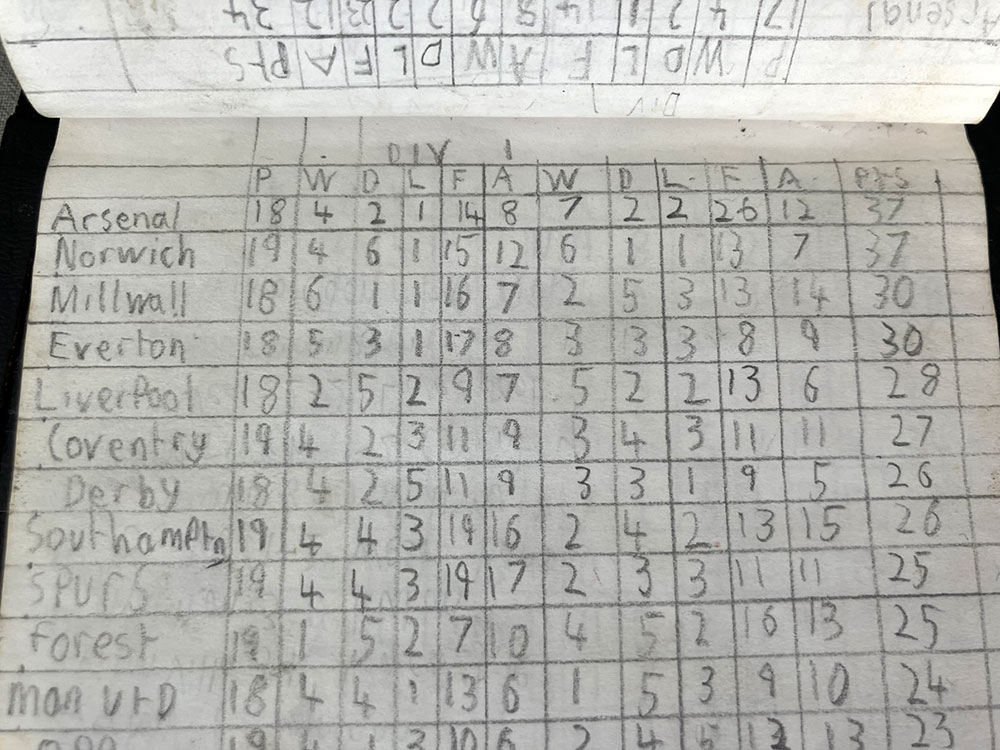 Arsenal 17 4 2 1 14 8
P W D L F A W D L F A Pts
Div
DIV 1
P W D L F A W D L. F A. Pts
Arsenal 18 4 2 1 14 8 7 2 2 26 12 37
Norwich 19 4 6 1 15 12 6 1 1 13 7 37
Millwall 18 6 1 1 16 7 2 5 3 13 14 30
Everton 18 5 3 1 17 8 3 3 3 8 9 30
Liverpool 18 2 5 2 9 7 5 2 2 13 6 28
Coventry 19 4 2 3 11 9 3 4 3 11 11 27
Derby 18 4 2 5 11 9 3 3 1 9 5 26
Southamptn 19 4 4 3 19 16 2 4 2 13 15 26
SPURS 19 4 4 3 19 17 2 3 3 11 11 25
forest 19 1 5 2 7 10 4 5 2 16 13 25
man UTD 18 4 4 1 13 6 1 5 3 9 10 24
19 4 1 3 10 6 2 4 13 23